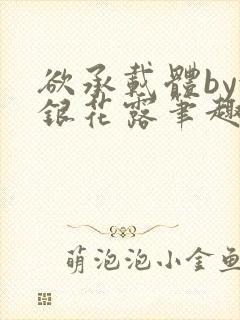 欲承載體by
銀花露筆趣
萌泡泡小金鱼